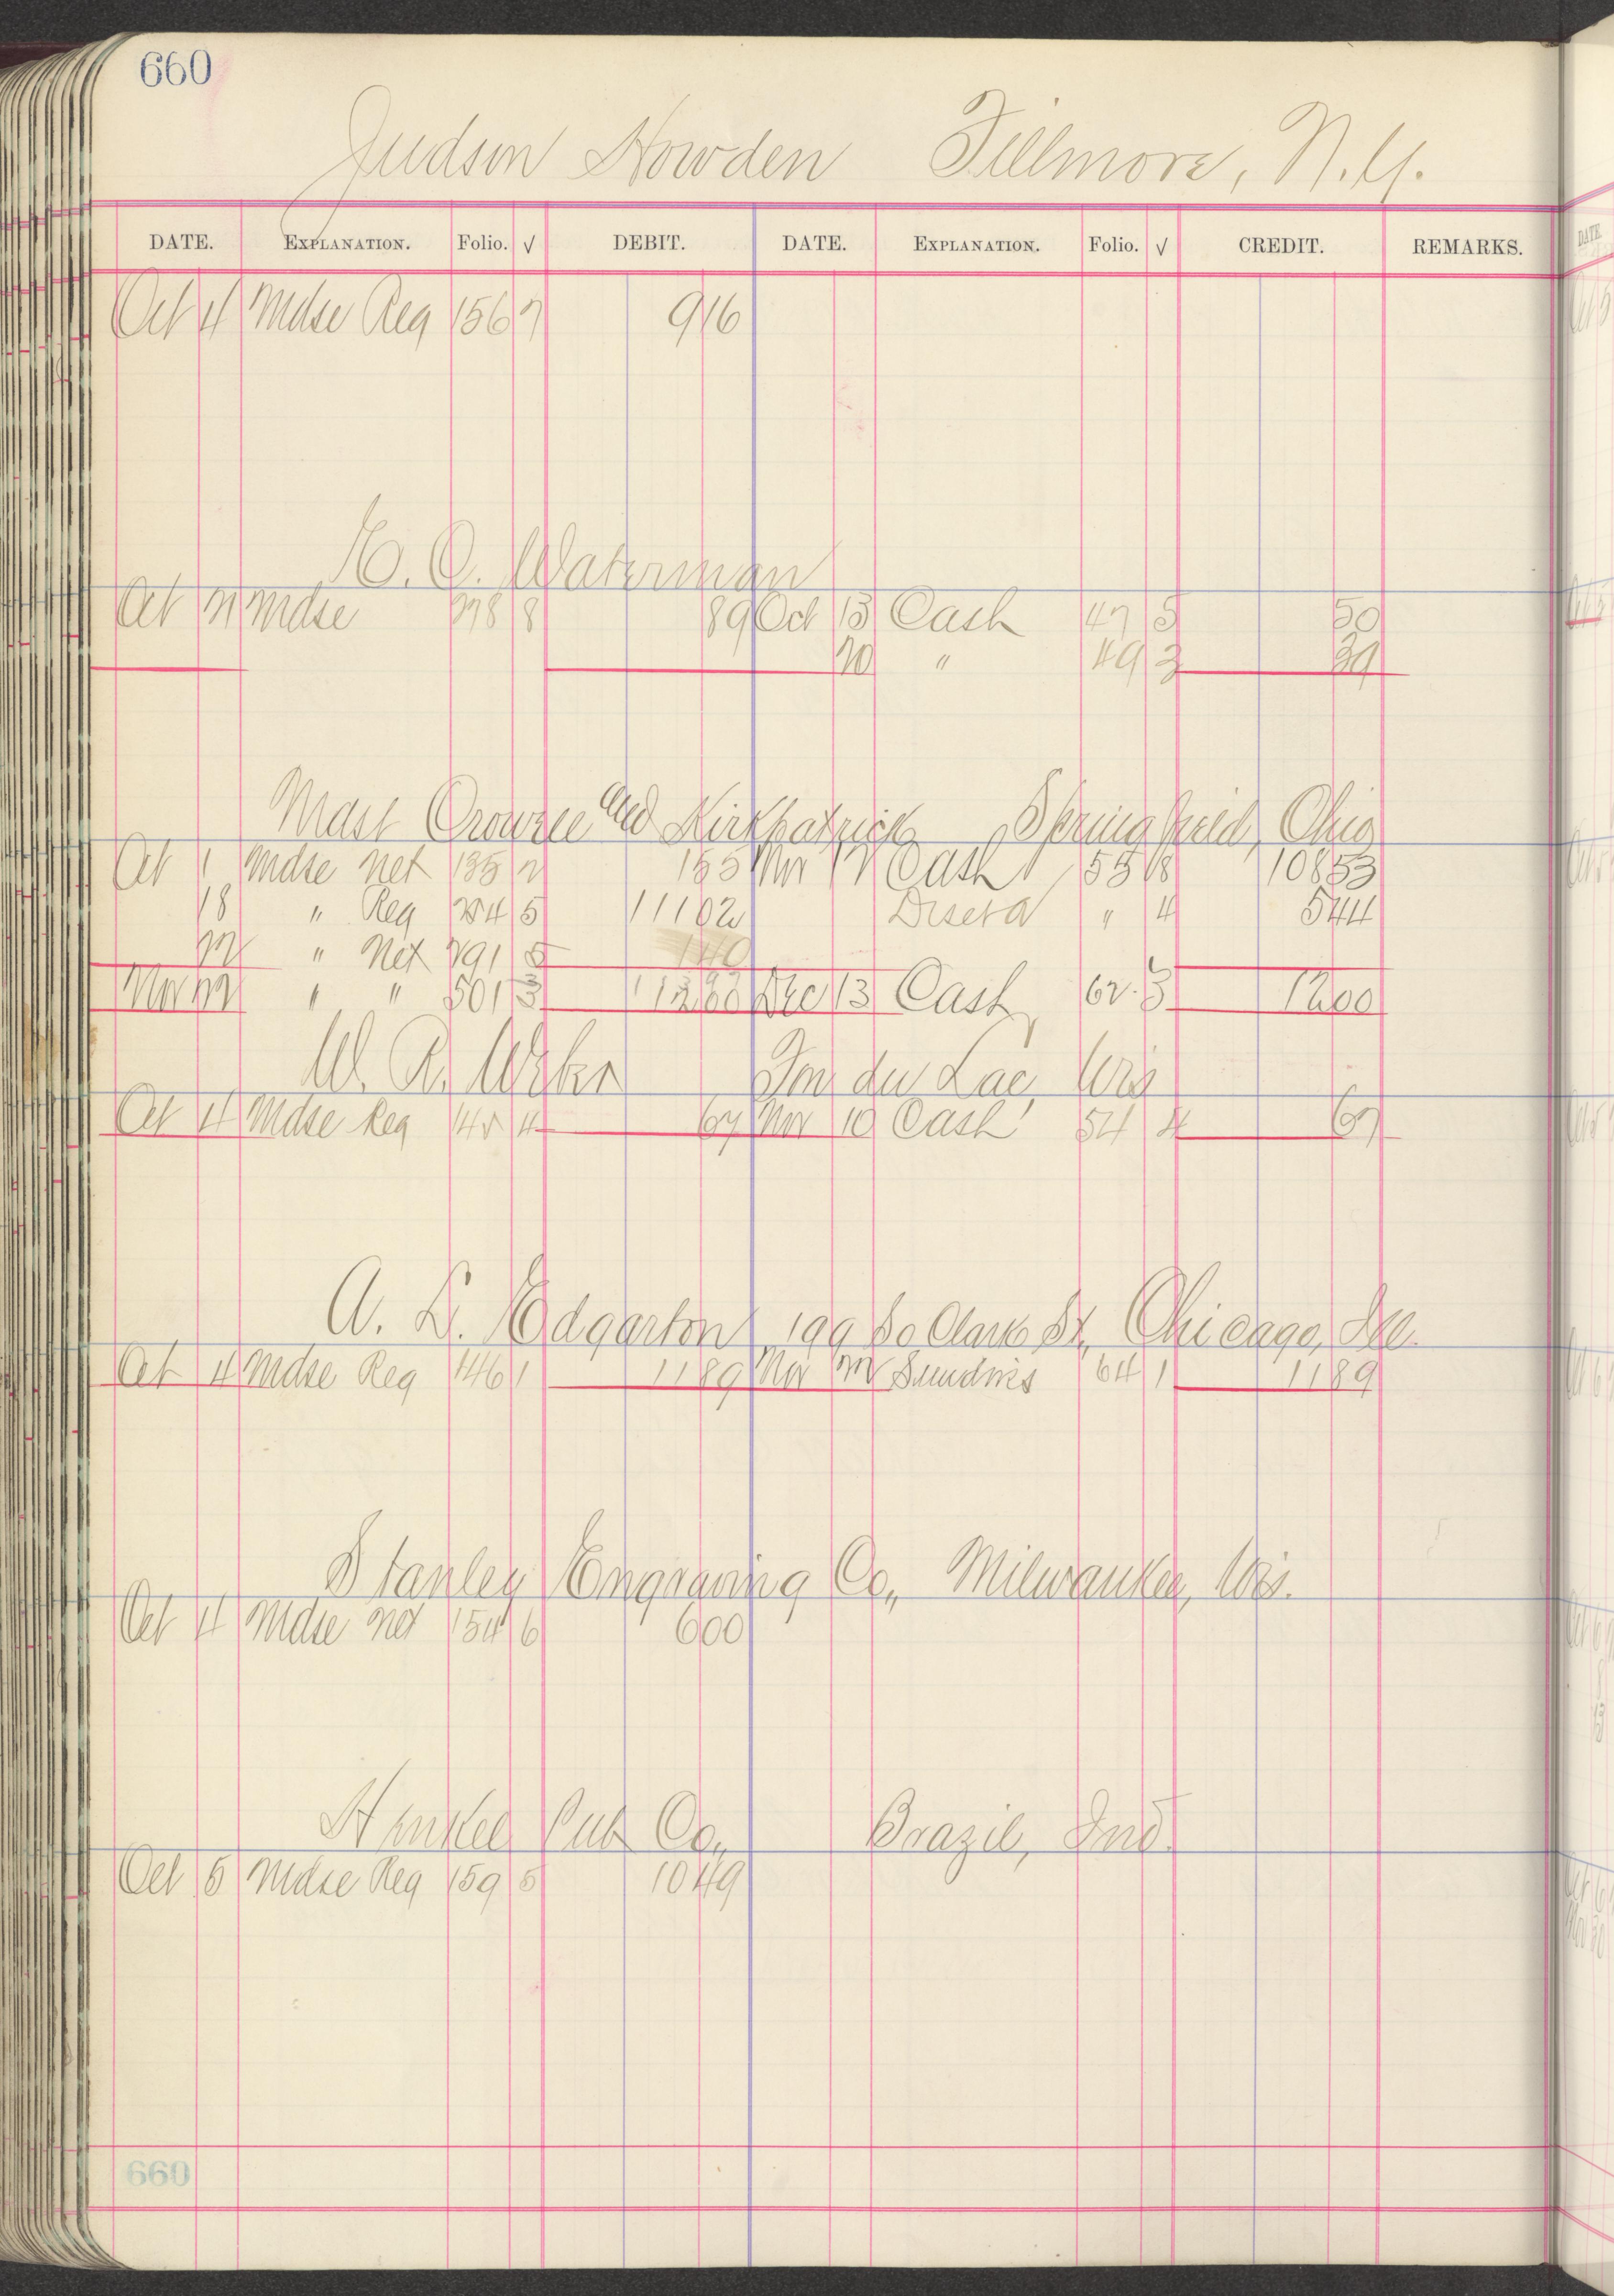 660
Judson Howden Fillmore, N.Y.
DATE. EXPLANATION. Folio. √ DEBIT. DATE. EXPLANATION. Folio. √ CREDIT. REMARKS.
Oct 4 Mdse Reg 156 7 9 16
Waterman
Oct Mdse 8 89 Oct 13 Cash 47 5 50
20 " 49 3 39
Mast Crowell and Kirkpatrick Springfield, Ohio
Oct 1 Mdse Net 135 2 1 55 Nov 17 Cash 55 8 108 53
18 " Reg 254 5 111 02 " 4 5 44
22 " Net 291 5 1 40
Nov 22 " " 501 3 12 00 Dec 13 Cash 62 3 12 00
W. Fon du Lac, Wis
Oct 4 Mdse Reg 4 67 Nov 10 Cash 54 4 67
A. L. Edgarton 199 So Clark St, Chicago, Ill.
Oct 4 Mdse Reg 146 1 11 89 Nov 22 Sundries 64 1 11 89
Stanley Engraving Co,, Milwaukee, Wis.
Oct 4 Mdse Net 154 6 6 00
Henkel Pub Co,, Brazil, Ind.
Oct 5 Mdse Reg 159 5 10 49
660